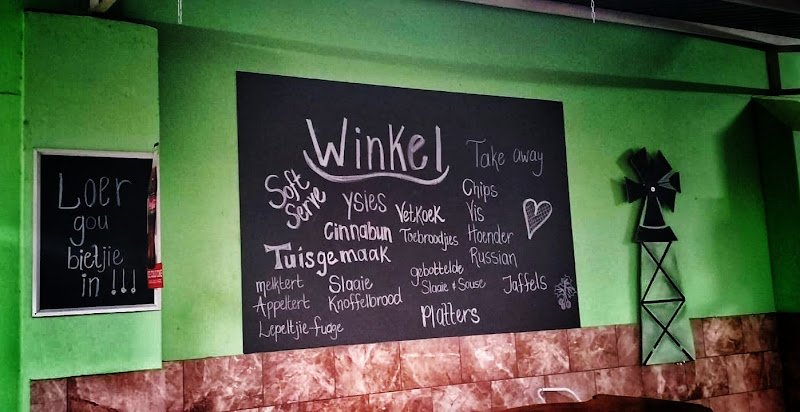 Loer
gou
bietjie
in !!!
Winkel
Take away
Soft
Serve
Ysies
Vetkoek
Cinnabun
Toebroodjies
Chips
Vis
Hoender
Russian
Tuisgemaak
melktert
Appeltert
Lepeltjie-fudge
Slaaie
Knoffelbrood
gebottelde
Slaaie & Souse
Jaffels
Platters